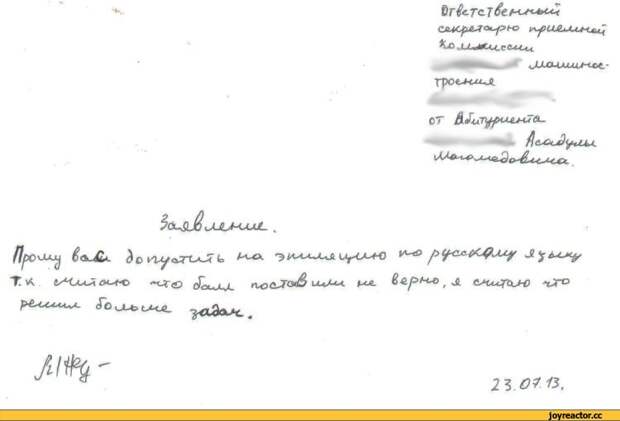 Ответственный
секретарю приемной
комиссии
машинос-
троения
от Абитуриента
Асадулы
Магомедовича.
Заявление.
Прошу вас допустить на эпиляцию по русскому языку
т.к. считаю что балл поставили не верно, я считаю что
решил больше задач.
23.07.13.
joyreactor.cc